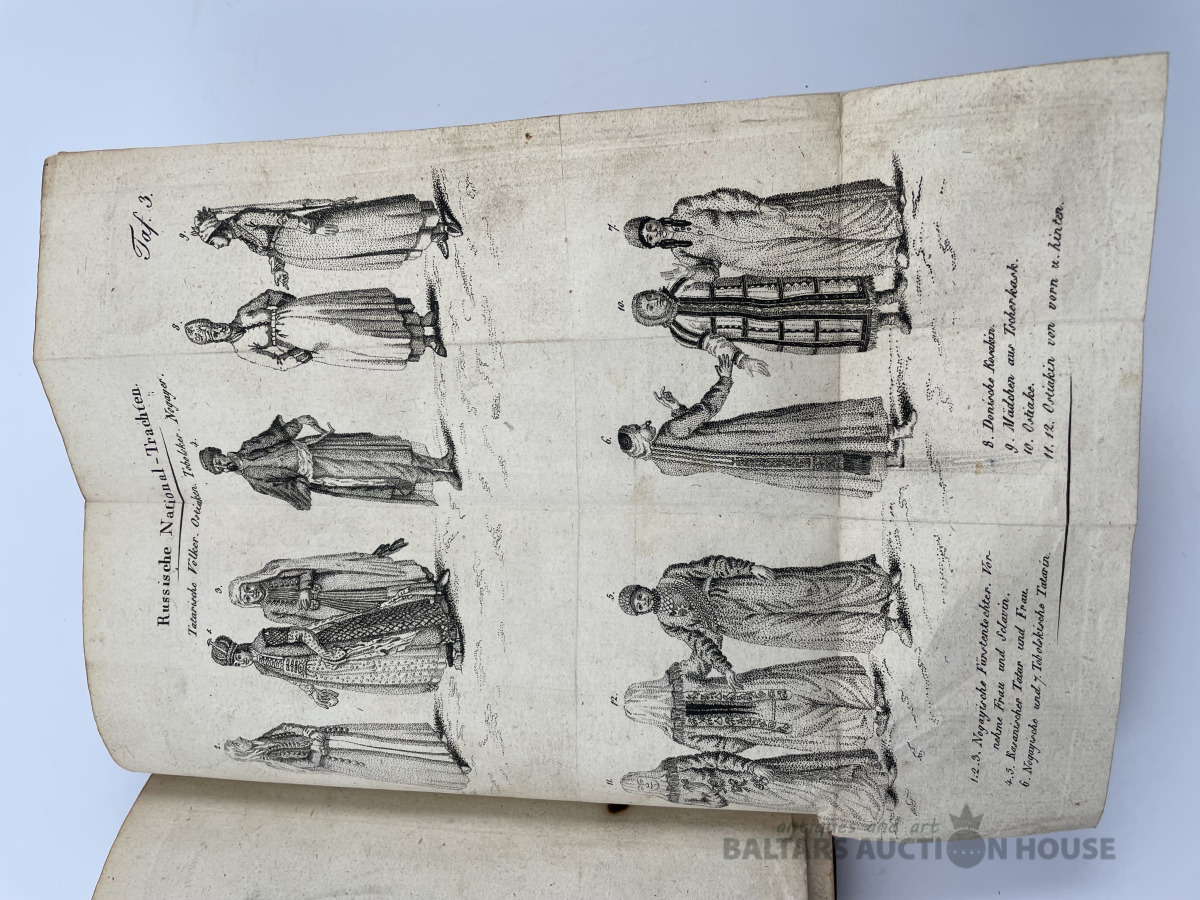 Taf. 3.
Russische National-Trachten.
Tatarische Völker. Ostiaken. Tobolsker. Nogayer.
1.
2.
3.
4.
8.
9.
11.
12.
5.
6.
10.
7.
1. 2. 3. Nogayische Fürstentochter. Vor-
nehme Frau und Sclavin.
4. 5. Kasanischer Tatar und Frau.
6. Nogayische und 7. Tobolskische Tatarin.
8. Donische Kosakin.
9. Mädchen aus Tscherkask.
10. Ostiake.
11. 12. Ostiakin von vorn u. hinten.
antiques and art
BALTARS AUCTION HOUSE